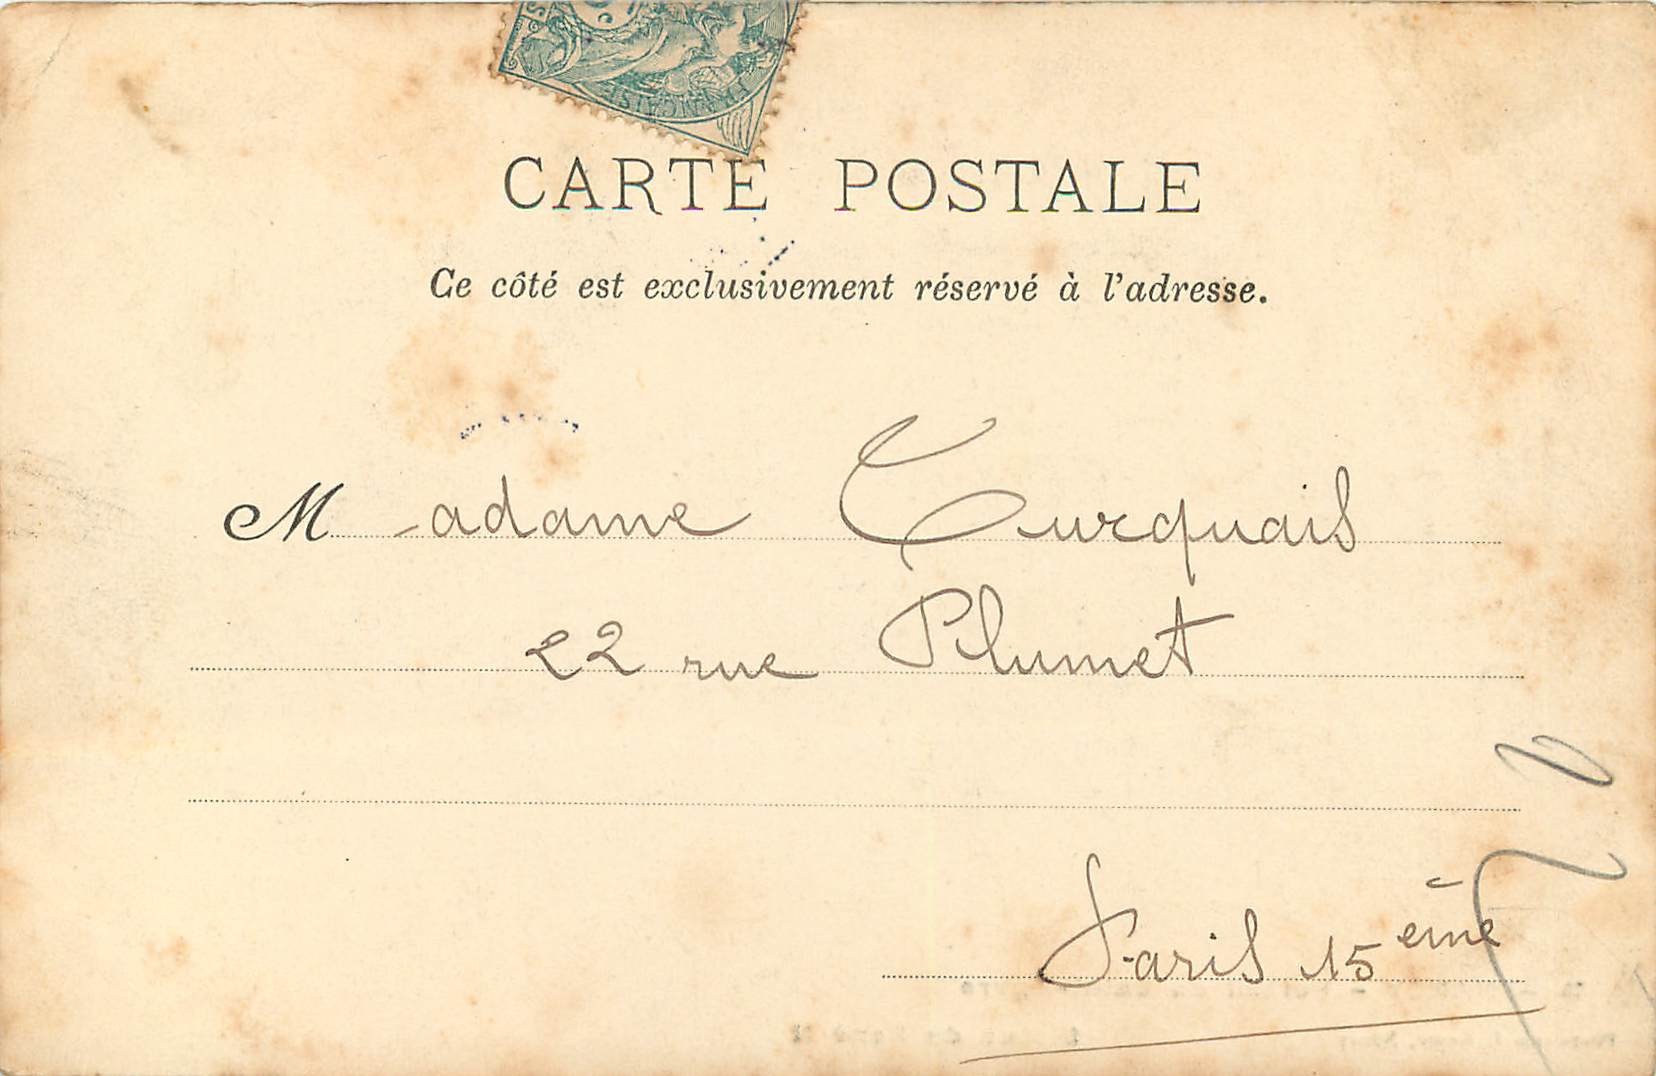 FRANÇAISE
CARTE POSTALE
Ce côté est exclusivement réservé à l'adresse.
Madame Turquais
22 rue Plumet
Paris 15ème